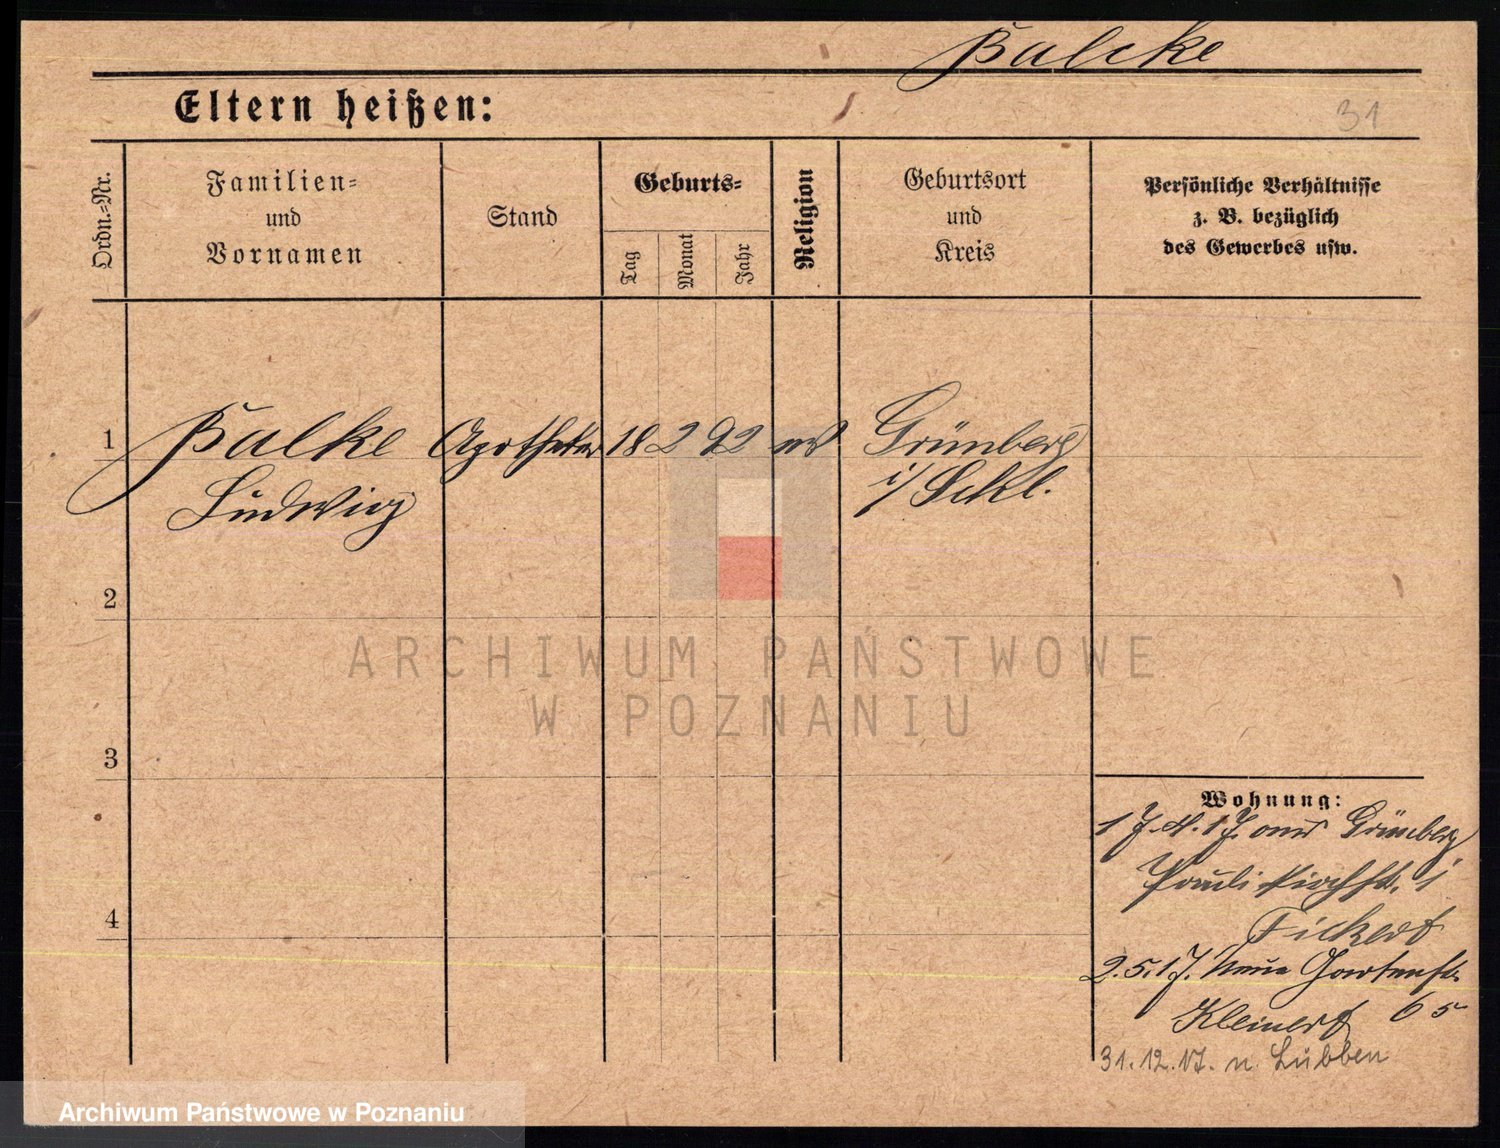 Balcke
Eltern heißen:
31
Ordn.-Nr.
Familien-
und
Vornamen
Stand
Geburts-
Tag
Monat
Jahr
Religion
Geburtsort
und
Kreis
Persönliche Verhältnisse
z. B. bezüglich
des Gewerbes usw.
1
Balke Apotheker 18 2 92 Grünberg
Ludwig i/ Schl.
2
ARCHIWUM PAŃSTWOWE
W POZNANIU
3
4
Wohnung:
17.4.17. aus Grünberg
Paulikirchstr. 1
Fickert
2.5.17. Neue Gartenstr.
Kleinert 65
31.12.17. n. Lübben
Archiwum Państwowe w Poznaniu